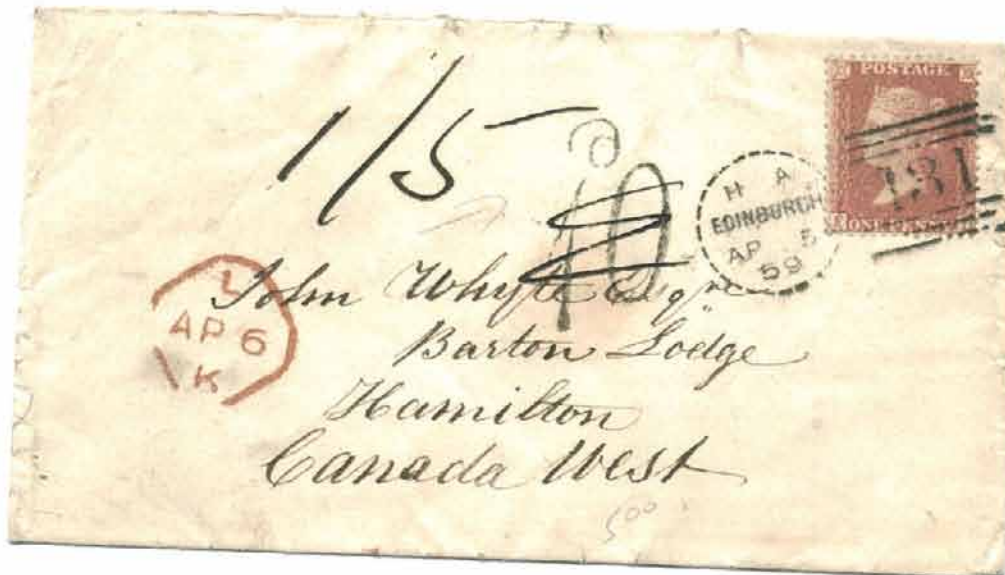 POSTAGE
ONE PENNY
131
H A
EDINBURGH
AP 5
59
1/5
10
L
AP 6
K
John Whyte Esqre
Barton Lodge
Hamilton
Canada West
500